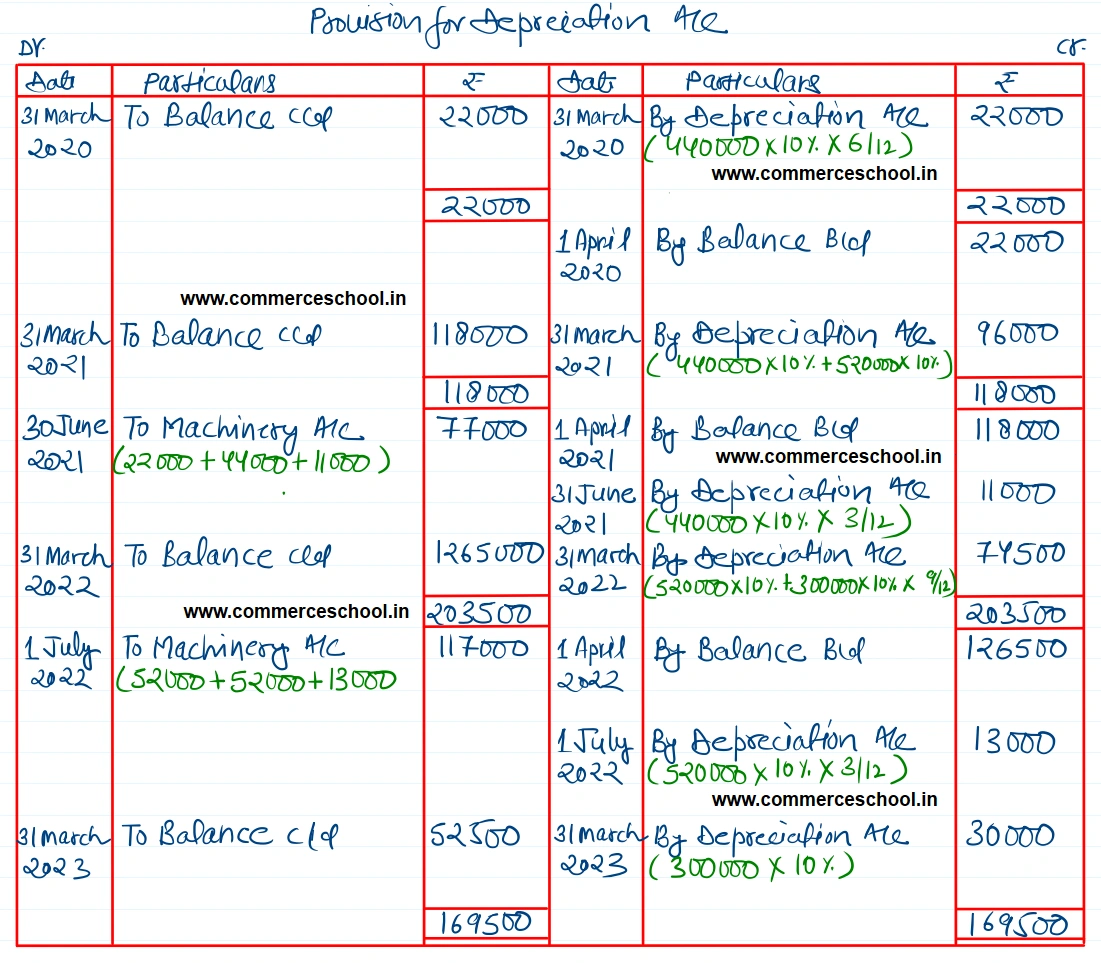 Provision for Depreciation A/c
Dr. Cr.
Date Particulars ₹ Date Particulars ₹
31 March To Balance C/d 22000 31 March By Depreciation A/c 22000
2020 2020 (440000 X 10% X 6/12)
www.commerceschool.in
22000 22000
1 April By Balance B/d 22000
2020
www.commerceschool.in
31 March To Balance C/d 118000 31 March By Depreciation A/c 96000
2021 2021 (440000 X 10% + 520000 X 10%)
118000 118000
30 June To Machinery A/c 77000 1 April By Balance B/d 118000
2021 (22000 + 44000 + 11000) 2021
www.commerceschool.in
31 June By Depreciation A/c 11000
2021 (440000 X 10% X 3/12)
31 March To Balance C/d 1265000 31 March By Depreciation A/c 74500
2022 2022 (520000 X 10% + 300000 X 10% X 9/12)
www.commerceschool.in
203500 203500
1 July To Machinery A/c 117000 1 April By Balance B/d 126500
2022 (52000 + 52000 + 13000 2022
1 July By Depreciation A/c 13000
2022 (520000 X 10% X 3/12)
www.commerceschool.in
31 March To Balance c/d 52500 31 March By Depreciation A/c 30000
2023 2023 (300000 X 10%)
169500 169500